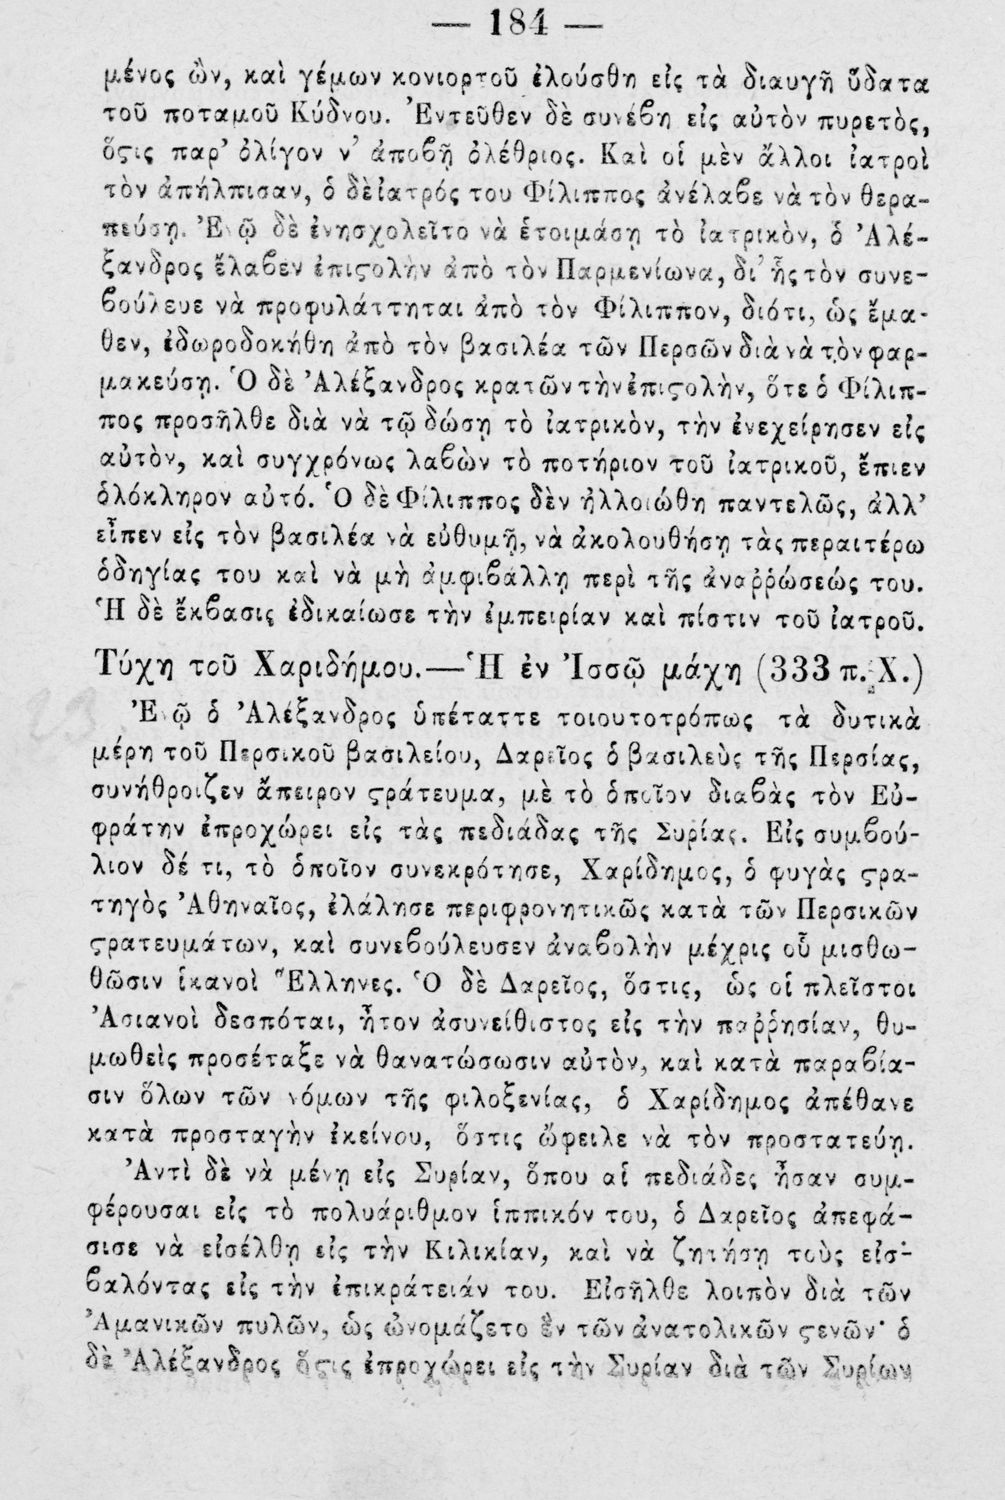 — 184 —
μένος ὢν, καὶ γέμων κονιορτοῦ ἐλούσθη εἰς τὰ διαυγῆ ὕδατα
τοῦ ποταμοῦ Κύδνου. Ἐντεῦθεν δὲ συνέβη εἰς αὐτὸν πυρετὸς,
ὅϛις παρ’ ὀλίγον ν’ ἀποβῇ ὀλέθριος. Καὶ οἱ μὲν ἄλλοι ἰατροὶ
τὸν ἀπήλπισαν, ὁ δὲ ἰατρός του Φίλιππος ἀνέλαβε νὰ τὸν θερα-
πεύσῃ. Ἐνῷ δὲ ἐνησχολεῖτο νὰ ἑτοιμάσῃ τὸ ἰατρικὸν, ὁ Ἀλέ-
ξανδρος ἔλαβεν ἐπιϛολὴν ἀπὸ τὸν Παρμενίωνα, δι’ ἧς τὸν συνε-
βούλευε νὰ προφυλάττηται ἀπὸ τὸν Φίλιππον, διότι, ὡς ἔμα-
θεν, ἐδωροδοκήθη ἀπὸ τὸν βασιλέα τῶν Περσῶν διὰ νὰ τὸν φαρ-
μακεύσῃ. Ὁ δὲ Ἀλέξανδρος κρατῶν τὴν ἐπιϛολὴν, ὅτε ὁ Φίλιπ-
πος προσῆλθε διὰ νὰ τῷ δώσῃ τὸ ἰατρικὸν, τὴν ἐνεχείρησεν εἰς
αὐτὸν, καὶ συγχρόνως λαβὼν τὸ ποτήριον τοῦ ἰατρικοῦ, ἔπιεν
ὁλόκληρον αὐτό. Ὁ δὲ Φίλιππος δὲν ἠλλοιώθη παντελῶς, ἀλλ’
εἶπεν εἰς τὸν βασιλέα νὰ εὐθυμῇ, νὰ ἀκολουθήσῃ τὰς περαιτέρω
ὁδηγίας του καὶ νὰ μὴ ἀμφιβάλλῃ περὶ τῆς ἀναῤῥώσεώς του.
Ἡ δὲ ἔκβασις ἐδικαίωσε τὴν ἐμπειρίαν καὶ πίστιν τοῦ ἰατροῦ.
Τύχη τοῦ Χαριδήμου.—Ἡ ἐν Ἰσσῷ μάχη (333 π. Χ.)
Ἐνῷ ὁ Ἀλέξανδρος ὑπέταττε τοιουτοτρόπως τὰ δυτικὰ
μέρη τοῦ Περσικοῦ βασιλείου, Δαρεῖος ὁ βασιλεὺς τῆς Περσίας,
συνήθροιζεν ἄπειρον ϛράτευμα, μὲ τὸ ὁποῖον διαβὰς τὸν Εὐ-
φράτην ἐπροχώρει εἰς τὰς πεδιάδας τῆς Συρίας. Εἰς συμβού-
λιον δέ τι, τὸ ὁποῖον συνεκρότησε, Χαρίδημος, ὁ φυγὰς ϛρα-
τηγὸς Ἀθηναῖος, ἐλάλησε περιφρονητικῶς κατὰ τῶν Περσικῶν
ϛρατευμάτων, καὶ συνεβούλευσεν ἀναβολὴν μέχρις οὗ μισθω-
θῶσιν ἱκανοὶ Ἕλληνες. Ὁ δὲ Δαρεῖος, ὅστις, ὡς οἱ πλεῖστοι
Ἀσιανοὶ δεσπόται, ἦτον ἀσυνείθιστος εἰς τὴν παῤῥησίαν, θυ-
μωθεὶς προσέταξε νὰ θανατώσωσιν αὐτὸν, καὶ κατὰ παραβία-
σιν ὅλων τῶν νόμων τῆς φιλοξενίας, ὁ Χαρίδημος ἀπέθανε
κατὰ προσταγὴν ἐκείνου, ὅστις ὤφειλε νὰ τὸν προστατεύῃ.
Ἀντὶ δὲ νὰ μένῃ εἰς Συρίαν, ὅπου αἱ πεδιάδες ἦσαν συμ-
φέρουσαι εἰς τὸ πολυάριθμον ἱππικόν του, ὁ Δαρεῖος ἀπεφά-
σισε νὰ εἰσέλθῃ εἰς τὴν Κιλικίαν, καὶ νὰ ζητήσῃ τοὺς εἰσ-
βαλόντας εἰς τὴν ἐπικράτειάν του. Εἰσῆλθε λοιπὸν διὰ τῶν
Ἀμανικῶν πυλῶν, ὡς ὠνομάζετο ἓν τῶν ἀνατολικῶν ϛενῶν· ὁ
δὲ Ἀλέξανδρος ὅϛις ἐπροχώρει εἰς τὴν Συρίαν διὰ τῶν Συρίων